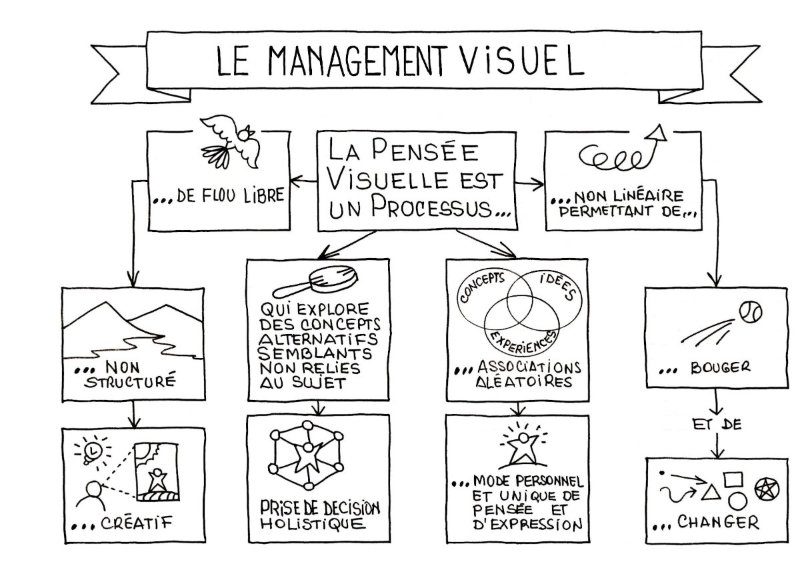 LE MANAGEMENT VISUEL
LA PENSÉE
VISUELLE EST
UN PROCESSUS...
...DE FLOU LIBRE
...NON LINÉAIRE
PERMETTANT DE...
... NON
STRUCTURÉ
QUI EXPLORE
DES CONCEPTS
ALTERNATIFS
SEMBLANTS
NON RELIES
AU SUJET
CONCEPTS
IDÉES
EXPERIENCES
...ASSOCIATIONS
ALÉATOIRES
... BOUGER
ET DE
... CRÉATIF
PRISE DE DECISION
HOLISTIQUE
...MODE PERSONNEL
ET UNIQUE DE
PENSÉE ET
D'EXPRESSION
... CHANGER